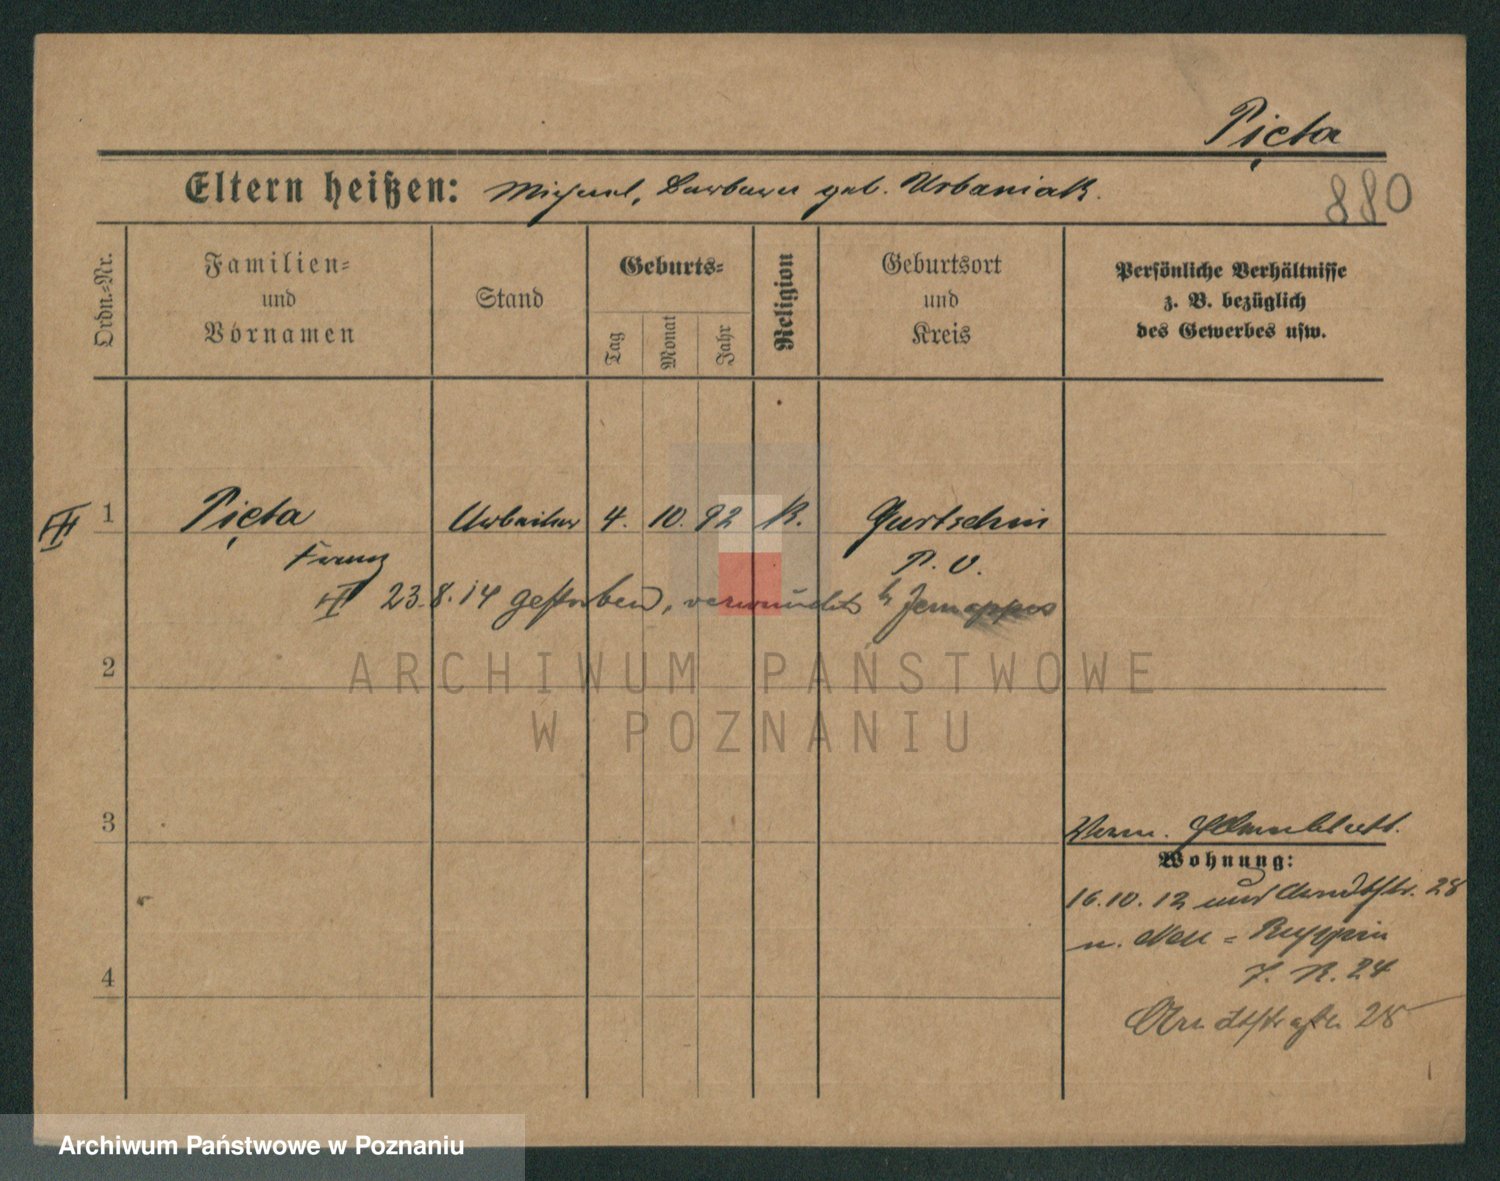 Pięta
880
Eltern heißen: Michael, Barbara geb. Urbaniak.
Ordn.-Nr.
Familien- und Vornamen
Stand
Geburts-
Tag
Monat
Jahr
Religion
Geburtsort und Kreis
Persönliche Verhältnisse
z. B. bezüglich
des Gewerbes usw.
1 Pięta Arbeiter 4. 10. 92 K. Gurtschin
Franz P. O.
23.8.14 gestorben, verwundet b. Jemappes
2
ARCHIWUM PAŃSTWOWE
W POZNANIU
3
Wohnung:
16.10.12 Arndtstr. 28
n. Neu-Ruppin
J. R. 24
Arndtstraße 28
4
Archiwum Państwowe w Poznaniu